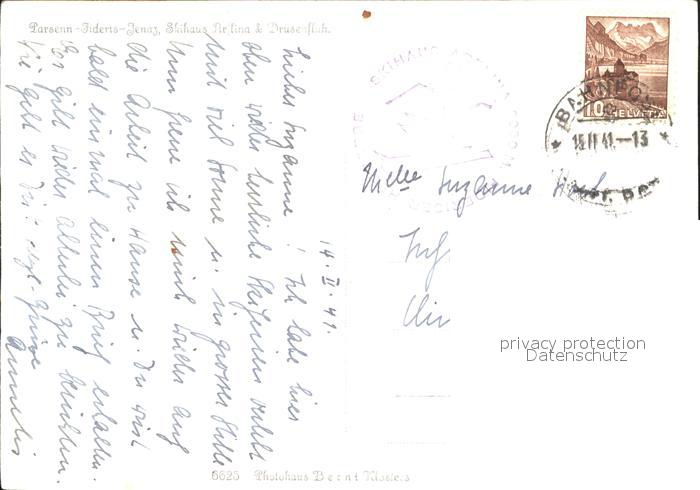 Parsenn-Fideris-Jenaz, Skihaus Arflina & Drusenfluh.
14. II. 41.
Liebe Suzanne! Ich habe hier
oben wieder herrliche Skiferien verlebt
mit viel Sonne u. in grosser Stille
Nun freue ich mich wieder auf
die Arbeit zu Hause u. Du wirst
bald einmal einen Brief erhalten.
Es gibt wieder allerlei zu berichten.
Wie geht es Dir?
Annelis
SKIHAUS ARFLINA
BAHNPOST
15.II.41.-13
10 HELVETIA
Melle Suzanne
privacy protection
Datenschutz
6625 Photohaus Berni Klosters